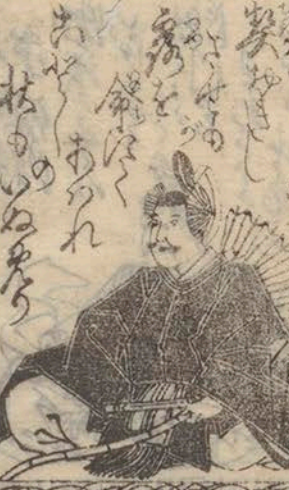 契おきし
させもが
露を
命にて
あはれ
ことし
の
秋もいぬめり